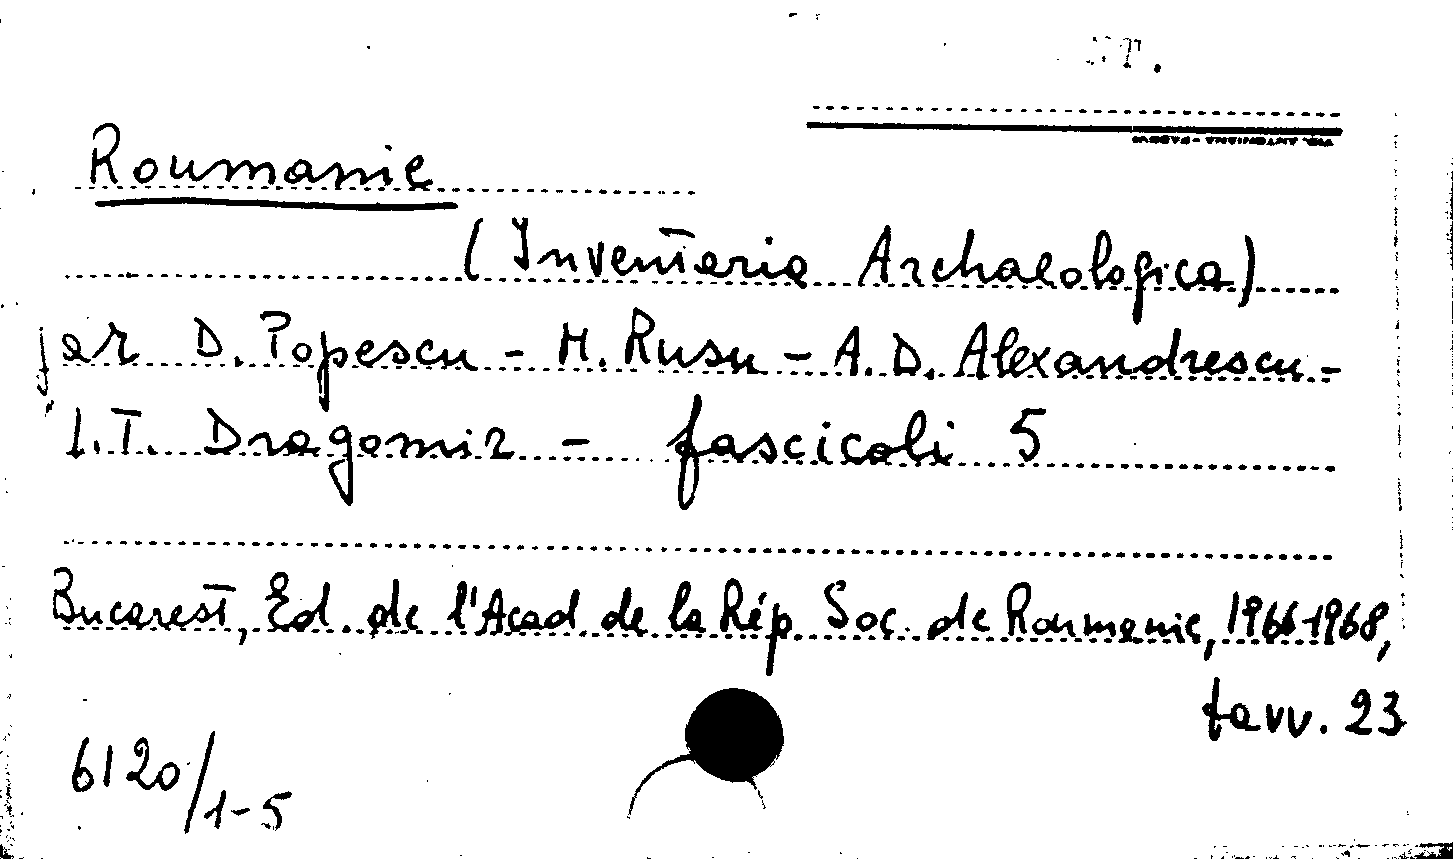 Roumanie
(Inventaria Archaeologica)
par D. Popescu - M. Rusu - A. D. Alexandrescu -
I. T. Dragomir - fascicoli 5
Bucarest, Ed. de l'Acad de la Rép Soc. de Roumanie, 1966-1968,
tavv. 23
6120/1-5